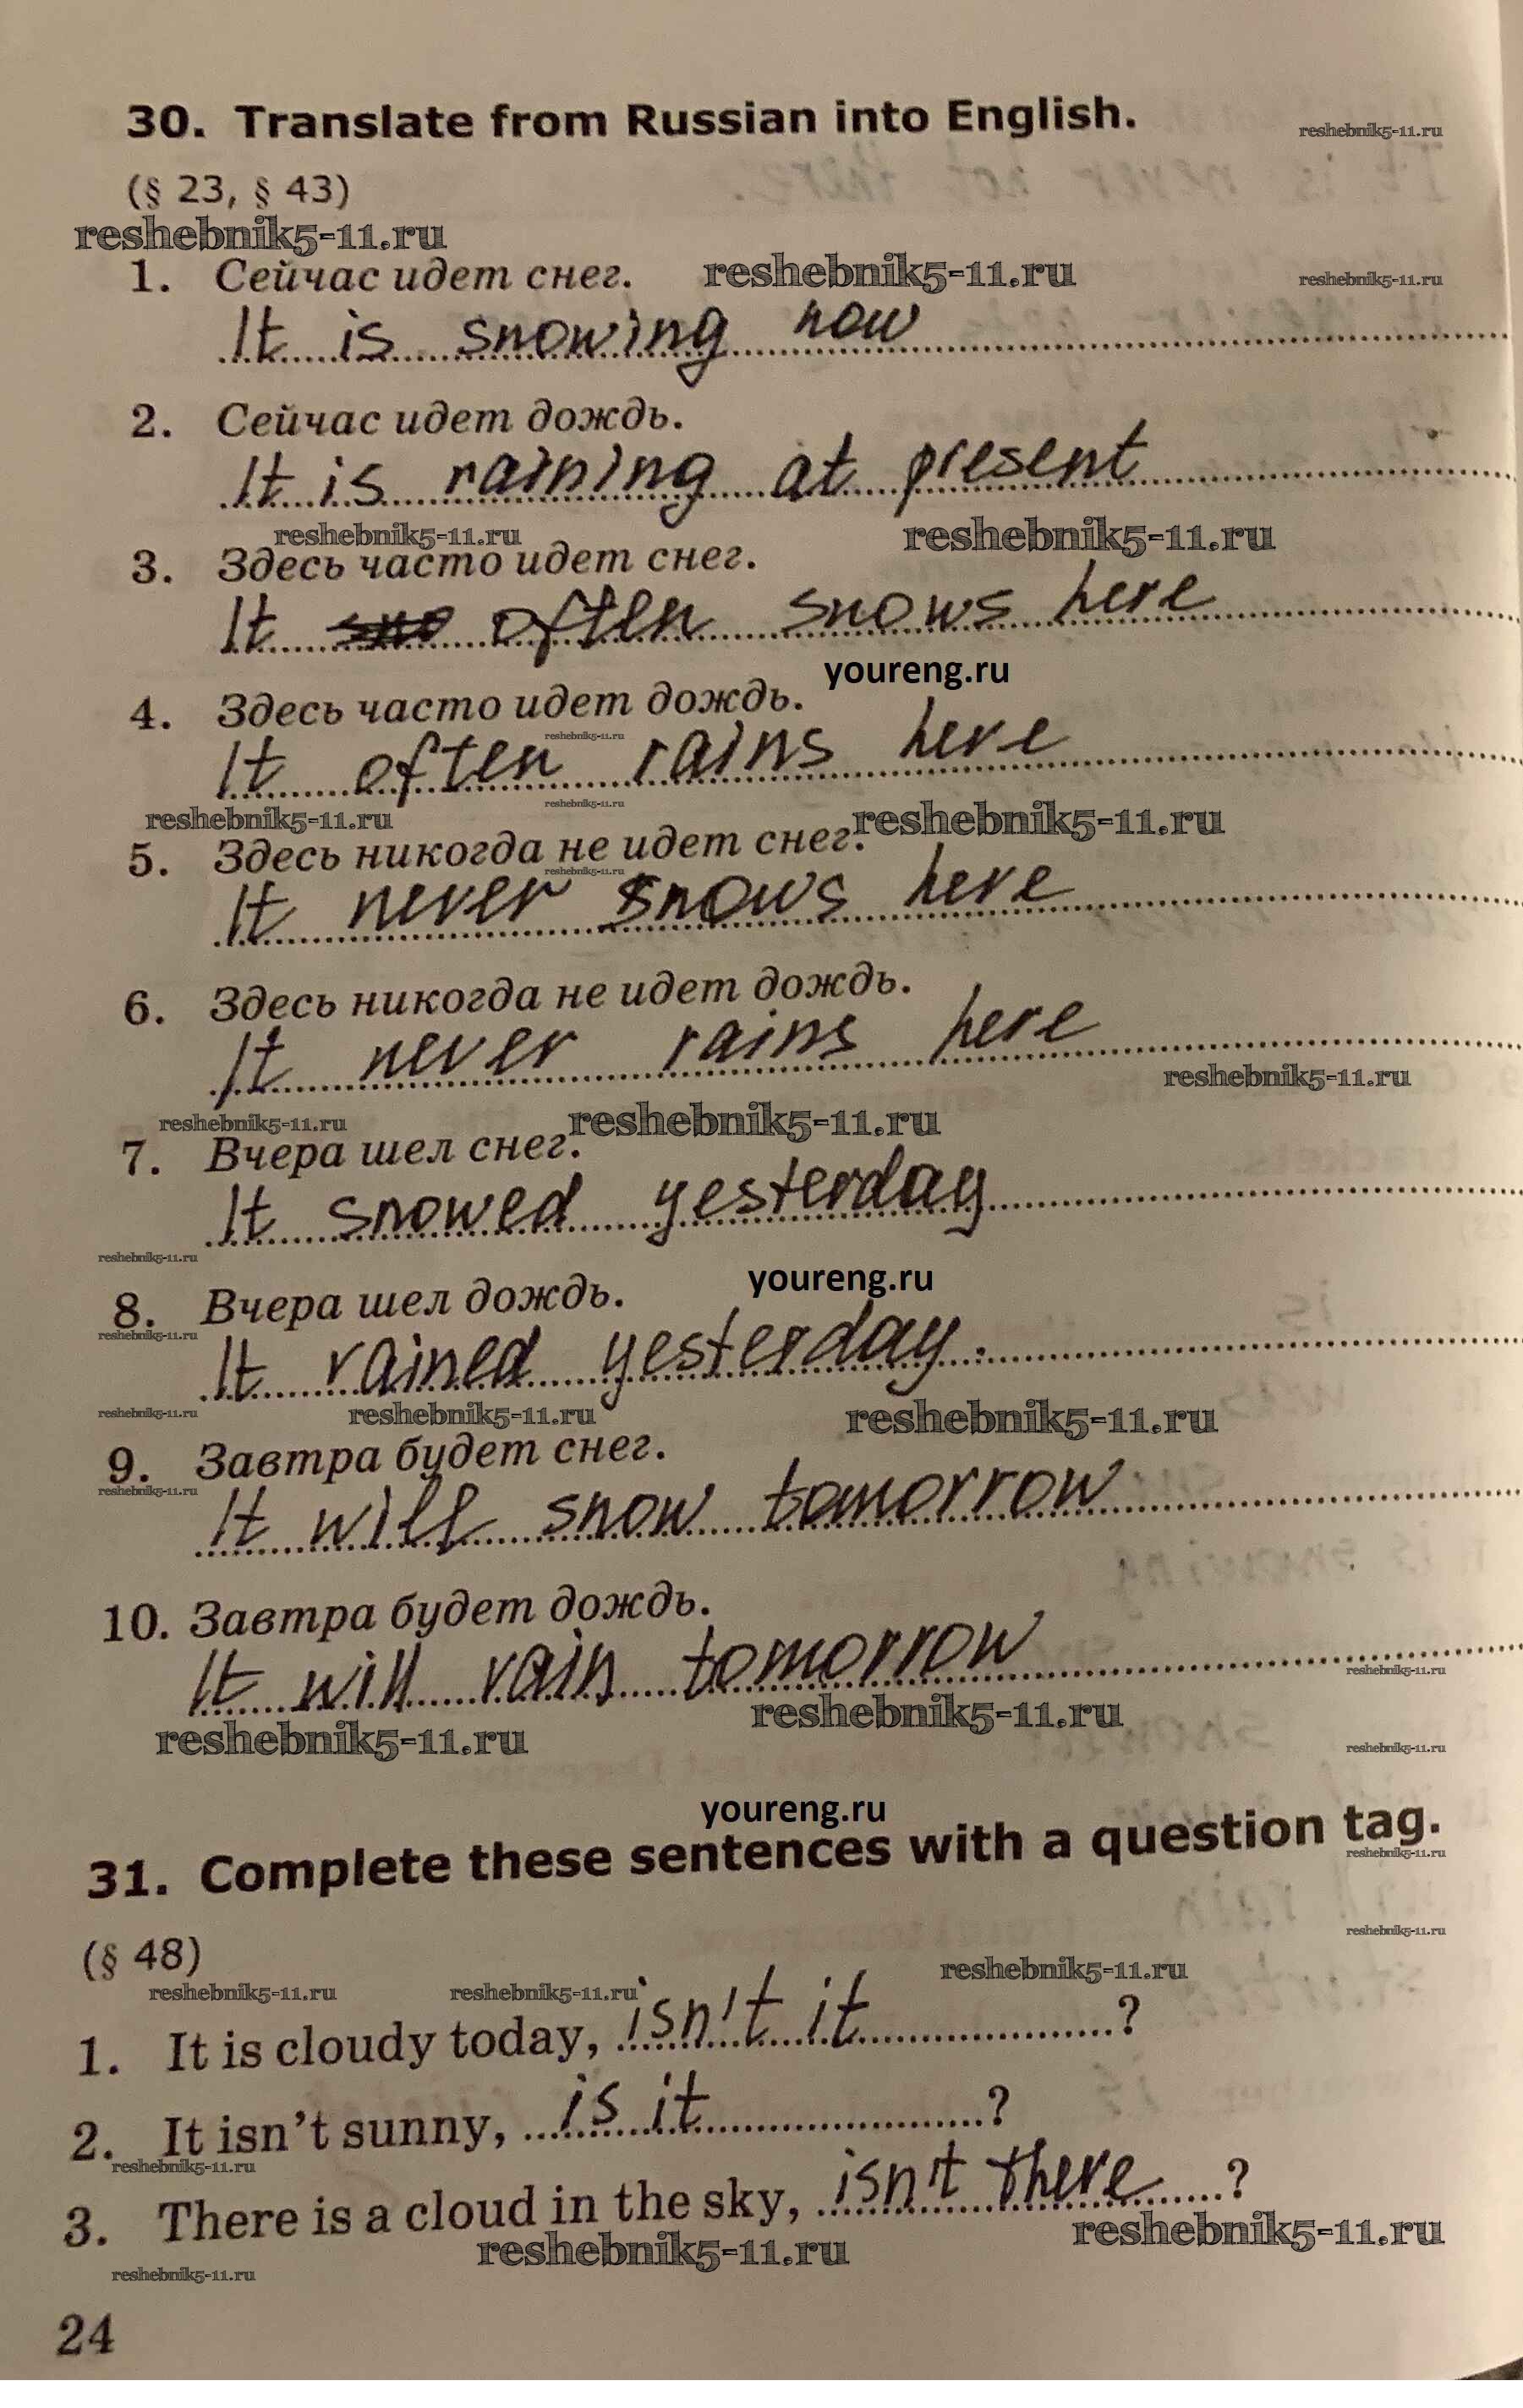 30. Translate from Russian into English.
reshebnik5-11.ru
(§ 23, § 43)
reshebnik5-11.ru
1. Сейчас идет снег.
reshebnik5-11.ru
reshebnik5-11.ru
It is snowing now
2. Сейчас идет дождь.
It is raining at present
reshebnik5-11.ru
reshebnik5-11.ru
3. Здесь часто идет снег.
It often snows here
youreng.ru
4. Здесь часто идет дождь.
reshebnik5-11.ru
It often rains here
reshebnik5-11.ru
reshebnik5-11.ru
reshebnik5-11.ru
5. Здесь никогда не идет снег.
reshebnik5-11.ru
It never snows here
6. Здесь никогда не идет дождь.
It never rains here
reshebnik5-11.ru
reshebnik5-11.ru
reshebnik5-11.ru
7. Вчера шел снег.
It snowed yesterday
reshebnik5-11.ru
youreng.ru
8. Вчера шел дождь.
reshebnik5-11.ru
It rained yesterday.
reshebnik5-11.ru
reshebnik5-11.ru
reshebnik5-11.ru
9. Завтра будет снег.
reshebnik5-11.ru
It will snow tomorrow
10. Завтра будет дождь.
It will rain tomorrow
reshebnik5-11.ru
reshebnik5-11.ru
reshebnik5-11.ru
reshebnik5-11.ru
youreng.ru
31. Complete these sentences with a question tag.
reshebnik5-11.ru
(§ 48)
reshebnik5-11.ru
reshebnik5-11.ru
reshebnik5-11.ru
reshebnik5-11.ru
1. It is cloudy today, isn't it ?
2. It isn't sunny, is it ?
reshebnik5-11.ru
3. There is a cloud in the sky, isn't there ?
reshebnik5-11.ru
reshebnik5-11.ru
reshebnik5-11.ru
24